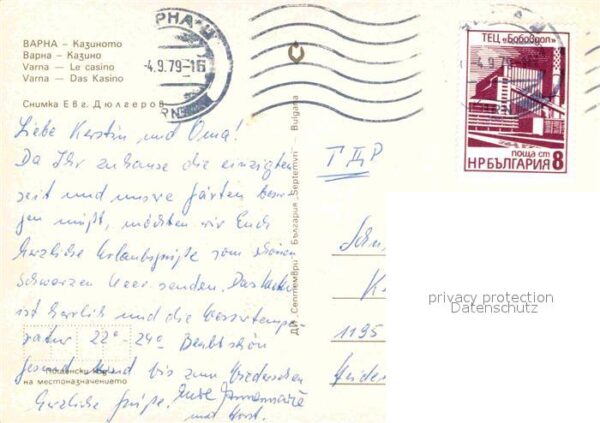 ВАРНА – Казиното
Варна – Казино
Varna – Le casino
Varna – Das Kasino
Снимка Евг. Дюлгеров
ВАРНА
-4.9.79-16
VARNA
4.9.79
ТЕЦ „Бобовдол“
поща ст
НРБЪЛГАРИЯ 8
ДП „Септември“ България „Septemvri“ Bulgaria
ГДР
Liebe Kerstin und Oma!
Da Ihr zuhause die einzigsten
seid und unsere Gärten
müßt, möchten wir Euch
herzliche Urlaubsgrüße vom schönen
schwarzen Meer senden. Das Wetter
ist herrlich und die Wassertemp
ratur 22°-24°. Bleibt schön
gesund und bis zum Wiedersehen
herzliche Grüße. Eure
und Horst.
Пощенски код
на местоназначението
1195
privacy protection
Datenschutz